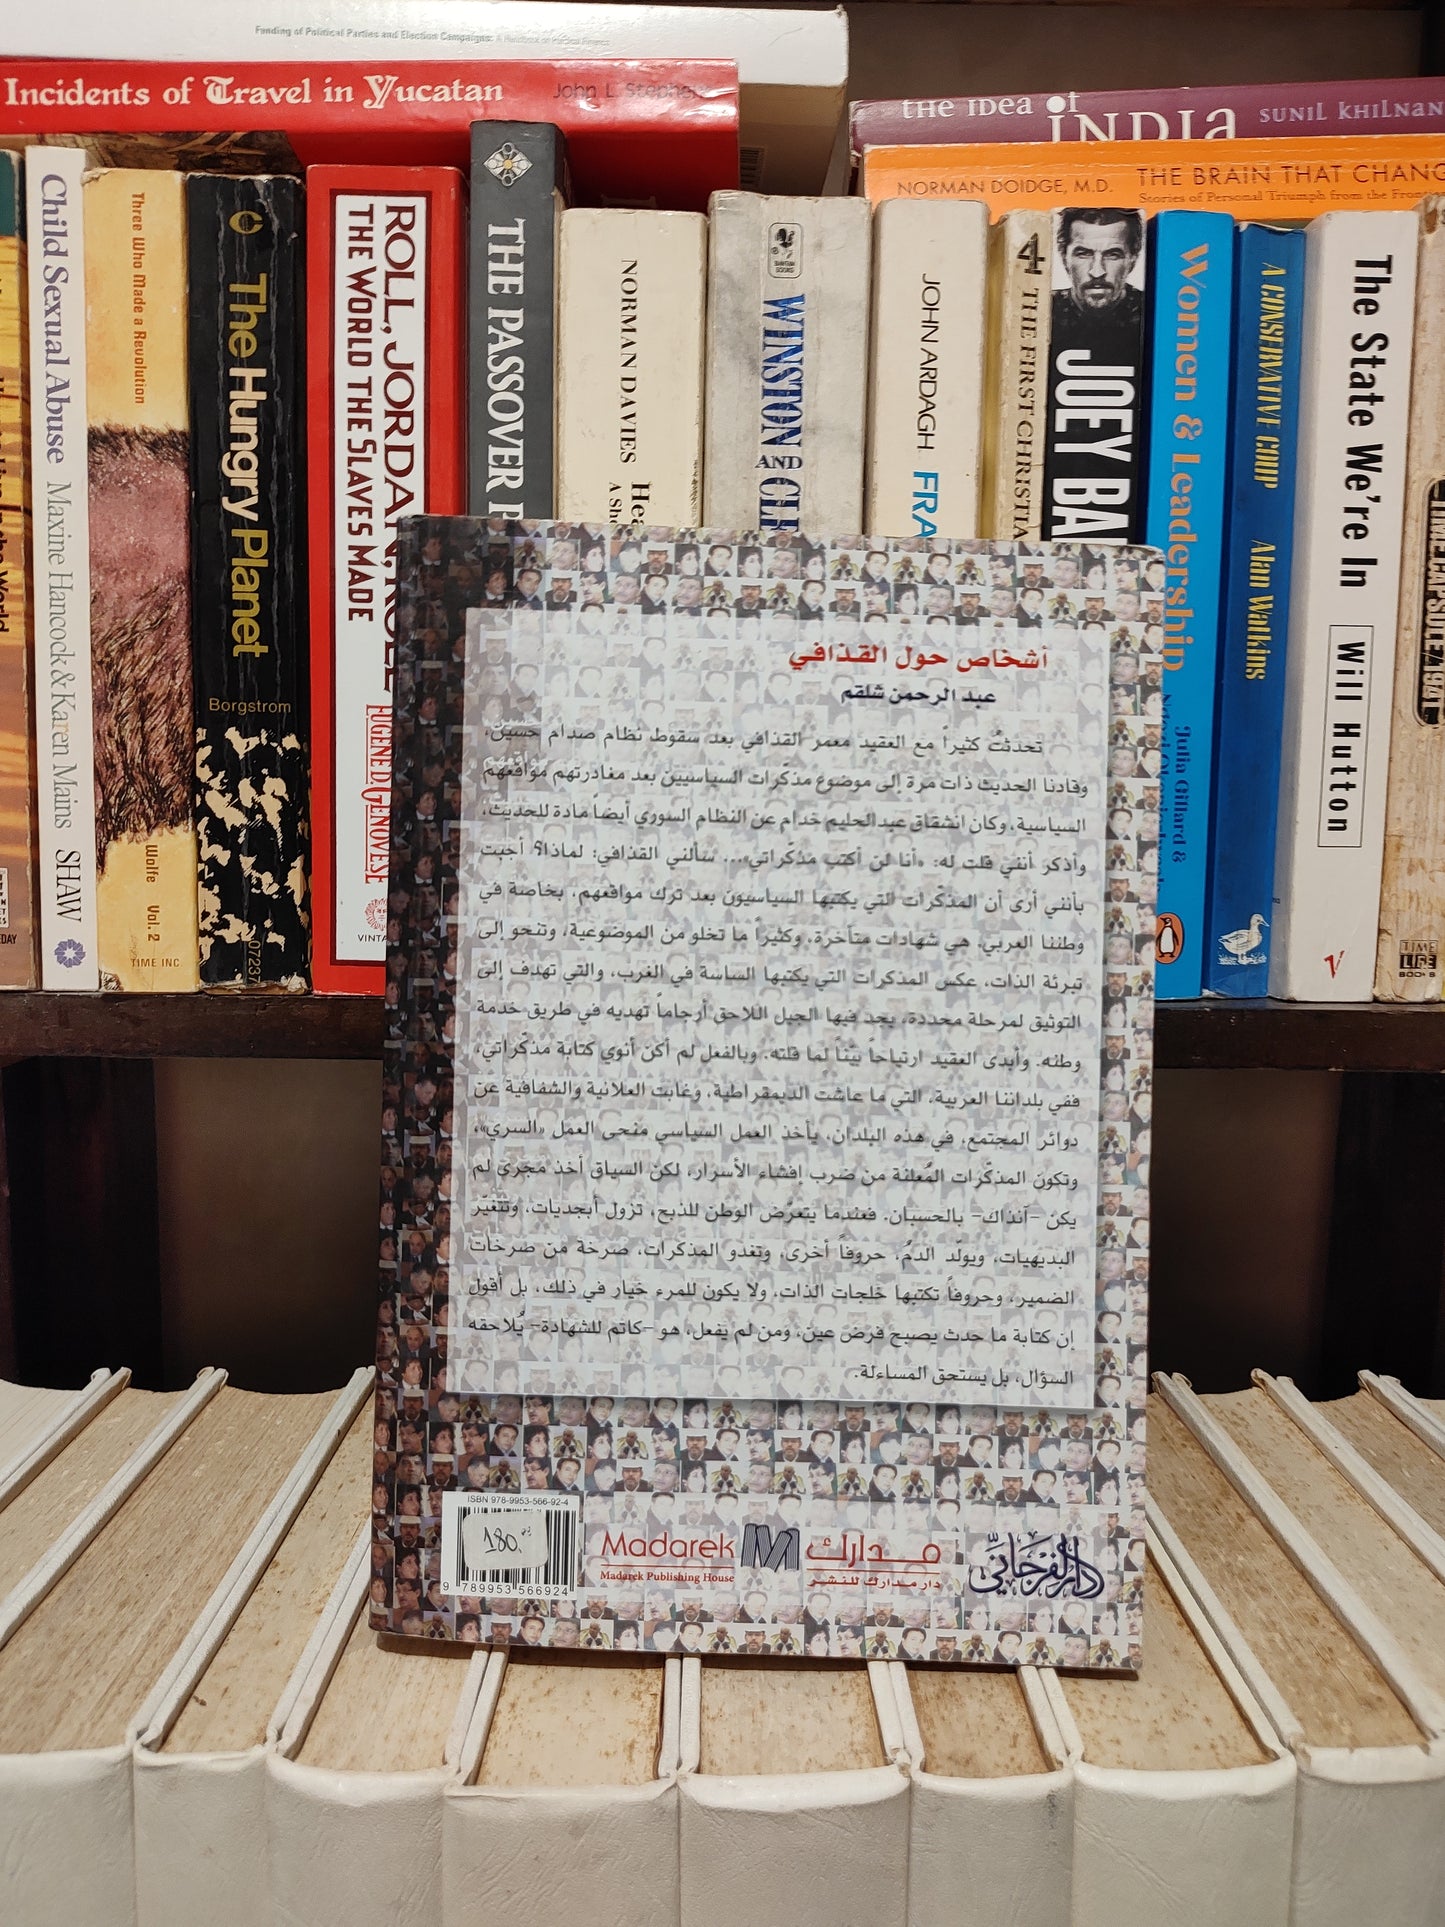 Funding of Political Parties and Election Campaigns: A Handbook on Political Finance
Incidents of Travel in Yucatan
John L. Stephens
THE IDEA of INDIA SUNIL KHILNAN
NORMAN DOIDGE, M.D. THE BRAIN THAT CHANG
Stories of Personal Triumph from the Frontie
Child Sexual Abuse Maxine Hancock & Karen Mains SHAW
Three Who Made a Revolution
Wolfe Vol. 2
TIME INC
The Hungry Planet
Borgstrom
ROLL, JORDAN, ROLL
THE WORLD THE SLAVES MADE
EUGENE D. GENOVESE
VINTA
THE PASSOVER P
NORMAN DAVIES
Hea
A Sho
BANTAM BOOKS
WINSTON AND CLE
JOHN ARDAGH
FRA
4
THE FIRST CHRISTIA
JOEY BA
Women & Leadership
Julia Gillard &
A CONSERVATIVE COUP Alan Watkins
The State We're In Will Hutton
V
TIME CAPSULE/1941
TIME LIFE BOOKS
أشخاص حول القذافي
عبد الرحمن شلقم
تحدثتُ كثيراً مع العقيد معمر القذافي بعد سقوط نظام صدام حسين،
وقادنا الحديث ذات مرة إلى موضوع مذكّرات السياسيين بعد مغادرتهم مواقعهم
السياسية، وكان انشقاق عبدالحليم خدام عن النظام السوري أيضاً مادة للحديث،
وأذكر أنني قلت له: «أنا لن أكتب مذكّراتي»... سألني القذافي: لماذا؟ أجبت
بأنني أرى أن المذكّرات التي يكتبها السياسيون بعد ترك مواقعهم، بخاصة في
وطننا العربي، هي شهادات متأخرة، وكثيراً ما تخلو من الموضوعية، وتنحو إلى
تبرئة الذات، عكس المذكرات التي يكتبها الساسة في الغرب، والتي تهدف إلى
التوثيق لمرحلة محددة، يجد فيها الجيل اللاحق أرجاماً تهديه في طريق خدمة
وطنه. وأبدى العقيد ارتياحاً بيّناً لما قلته. وبالفعل لم أكن أنوي كتابة مذكّراتي،
ففي بلداننا العربية، التي ما عاشت الديمقراطية، وغابت العلانية والشفافية عن
دوائر المجتمع، في هذه البلدان، يأخذ العمل السياسي منحى العمل «السري»،
وتكون المذكّرات المُعلنة من ضرب إفشاء الأسرار، لكن السياق أخذ مجرى لم
يكن -آنذاك- بالحسبان. فعندما يتعرّض الوطن للذبح، تزول أبجديات، وتتغيّر
البديهيات، ويولّد الدمُ، حروفاً أخرى، وتغدو المذكرات، صرخة من صرخات
الضمير، وحروفاً تكتبها خلجات الذات، ولا يكون للمرء خيار في ذلك، بل أقول
إن كتابة ما حدث يصبح فرض عين، ومن لم يفعل، هو -كاتم للشهادة- يُلاحقه
السؤال، بل يستحق المساءلة.
ISBN 978-9953-566-92-4
180.
9 789953 566924
Madarek
Madarek Publishing House
مدارك
دار مدارك للنشر
دار الفرجاني